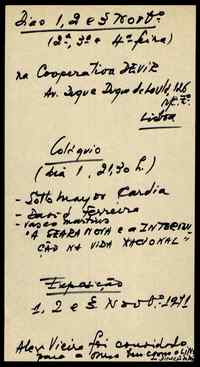 Dias 1, 2 e 3 Novbº
(2ª, 3ª e 4ª feira)
na Cooperativa DEVIR
Av. Duque de Loulé,
Lisboa
Colóquio
(dia 1, 21,30 h.)
- Sotto Mayor Cardia
- David Ferreira
- Vasco Martins
"A SEARA NOVA e a INTERVEN
ÇÃO NA VIDA NACIONAL"
Exposição
1, 2 e 3 Novbº 1971
Alex Vieira foi convidado
para a